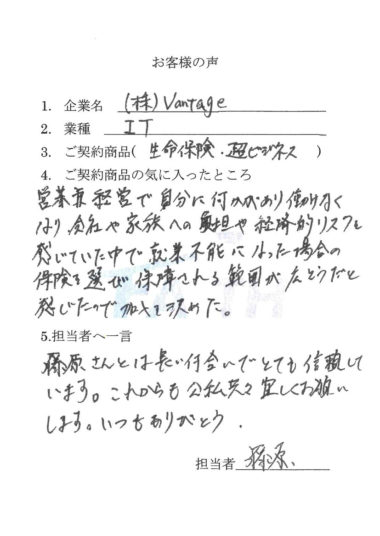 お客様の声
1. 企業名 (株)Vantage
2. 業種 IT
3. ご契約商品( 生命保険・超ビジネス )
4. ご契約商品の気に入ったところ
営業兼経営で自分に何かがあり働けなく
なり、会社や家族への負担や経済的リスクを
感じていた中で就業不能になった場合の
保険を選び保障される範囲が広そうだと
感じたので加入を決めた。
5.担当者へ一言
篠原さんとは長い付合いでとても信頼して
います。これからも公私共々宜しくお願い
します。いつもありがとう.
担当者 篠原.